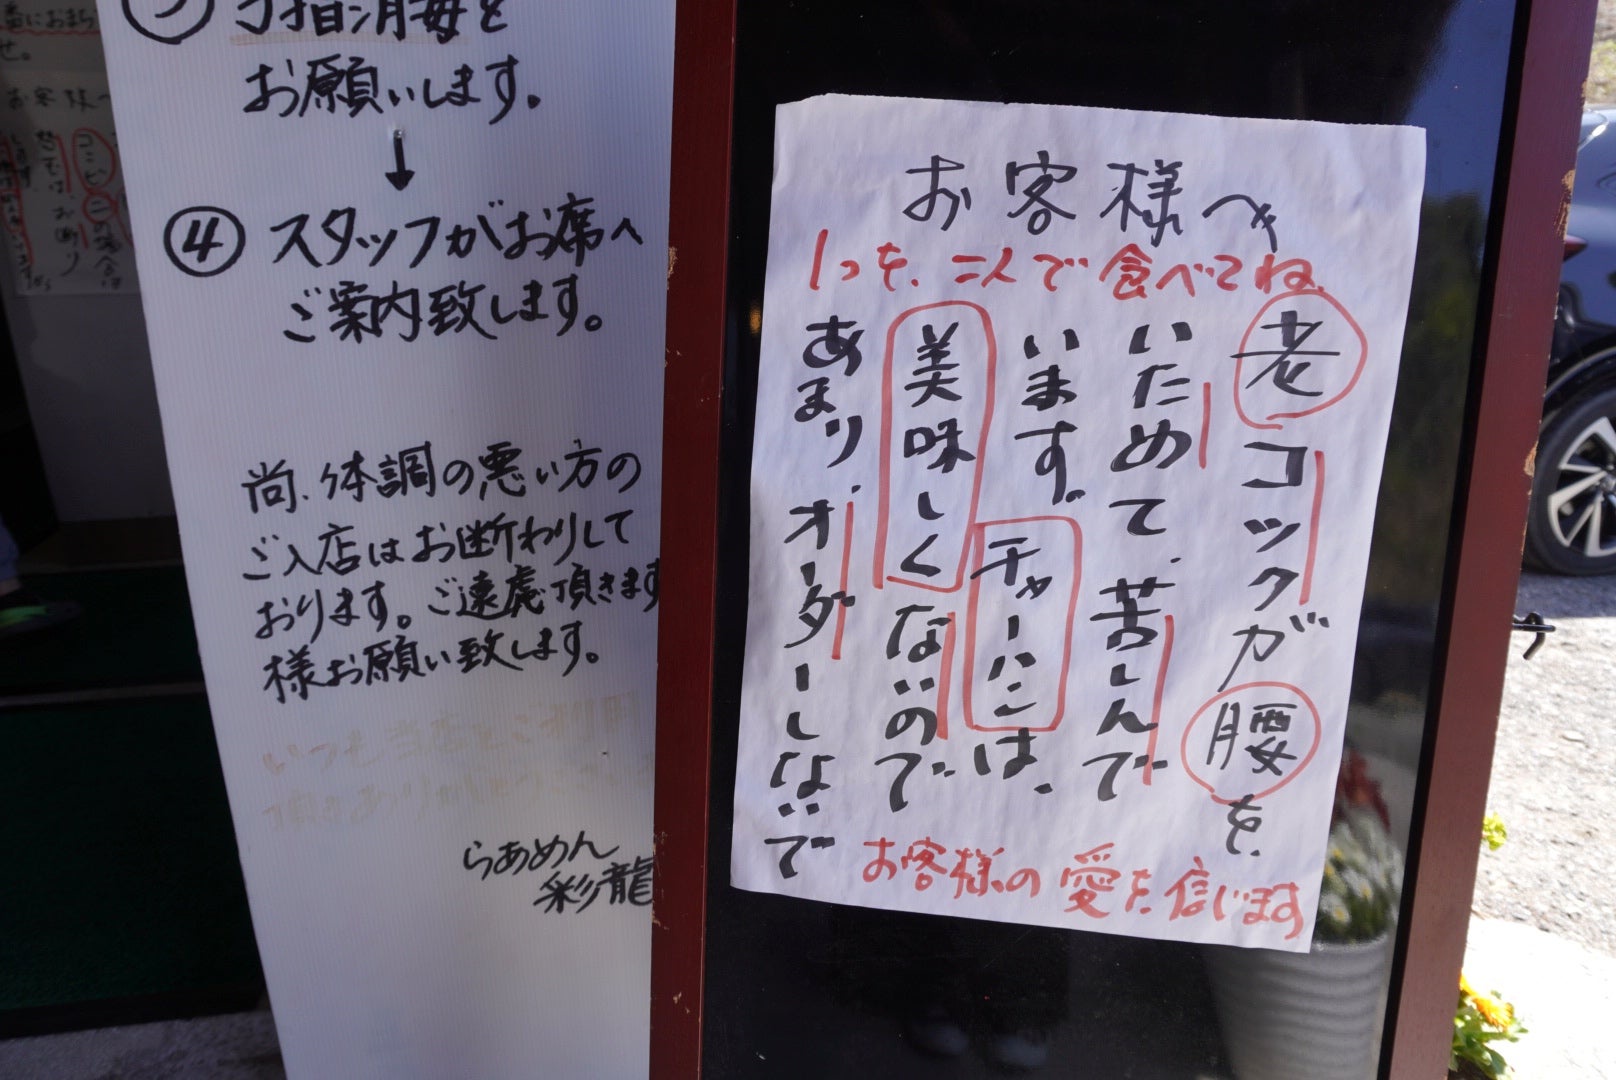 手指消毒を
お願いします。
↓
④ スタッフがお席へ
ご案内致します。
尚、体調の悪い方の
ご入店はお断わりして
おります。ご遠慮頂きます
様お願い致します。
いつも当店をご利用
頂きありがとうござ
らあめん
彩龍
お客様へ
1つを、二人で食べてね
老コックが腰を、
いためて、苦しんで
います。チャーハンは、
美味しくないので
あまり、オーダーしないで
お客様の愛を信じます